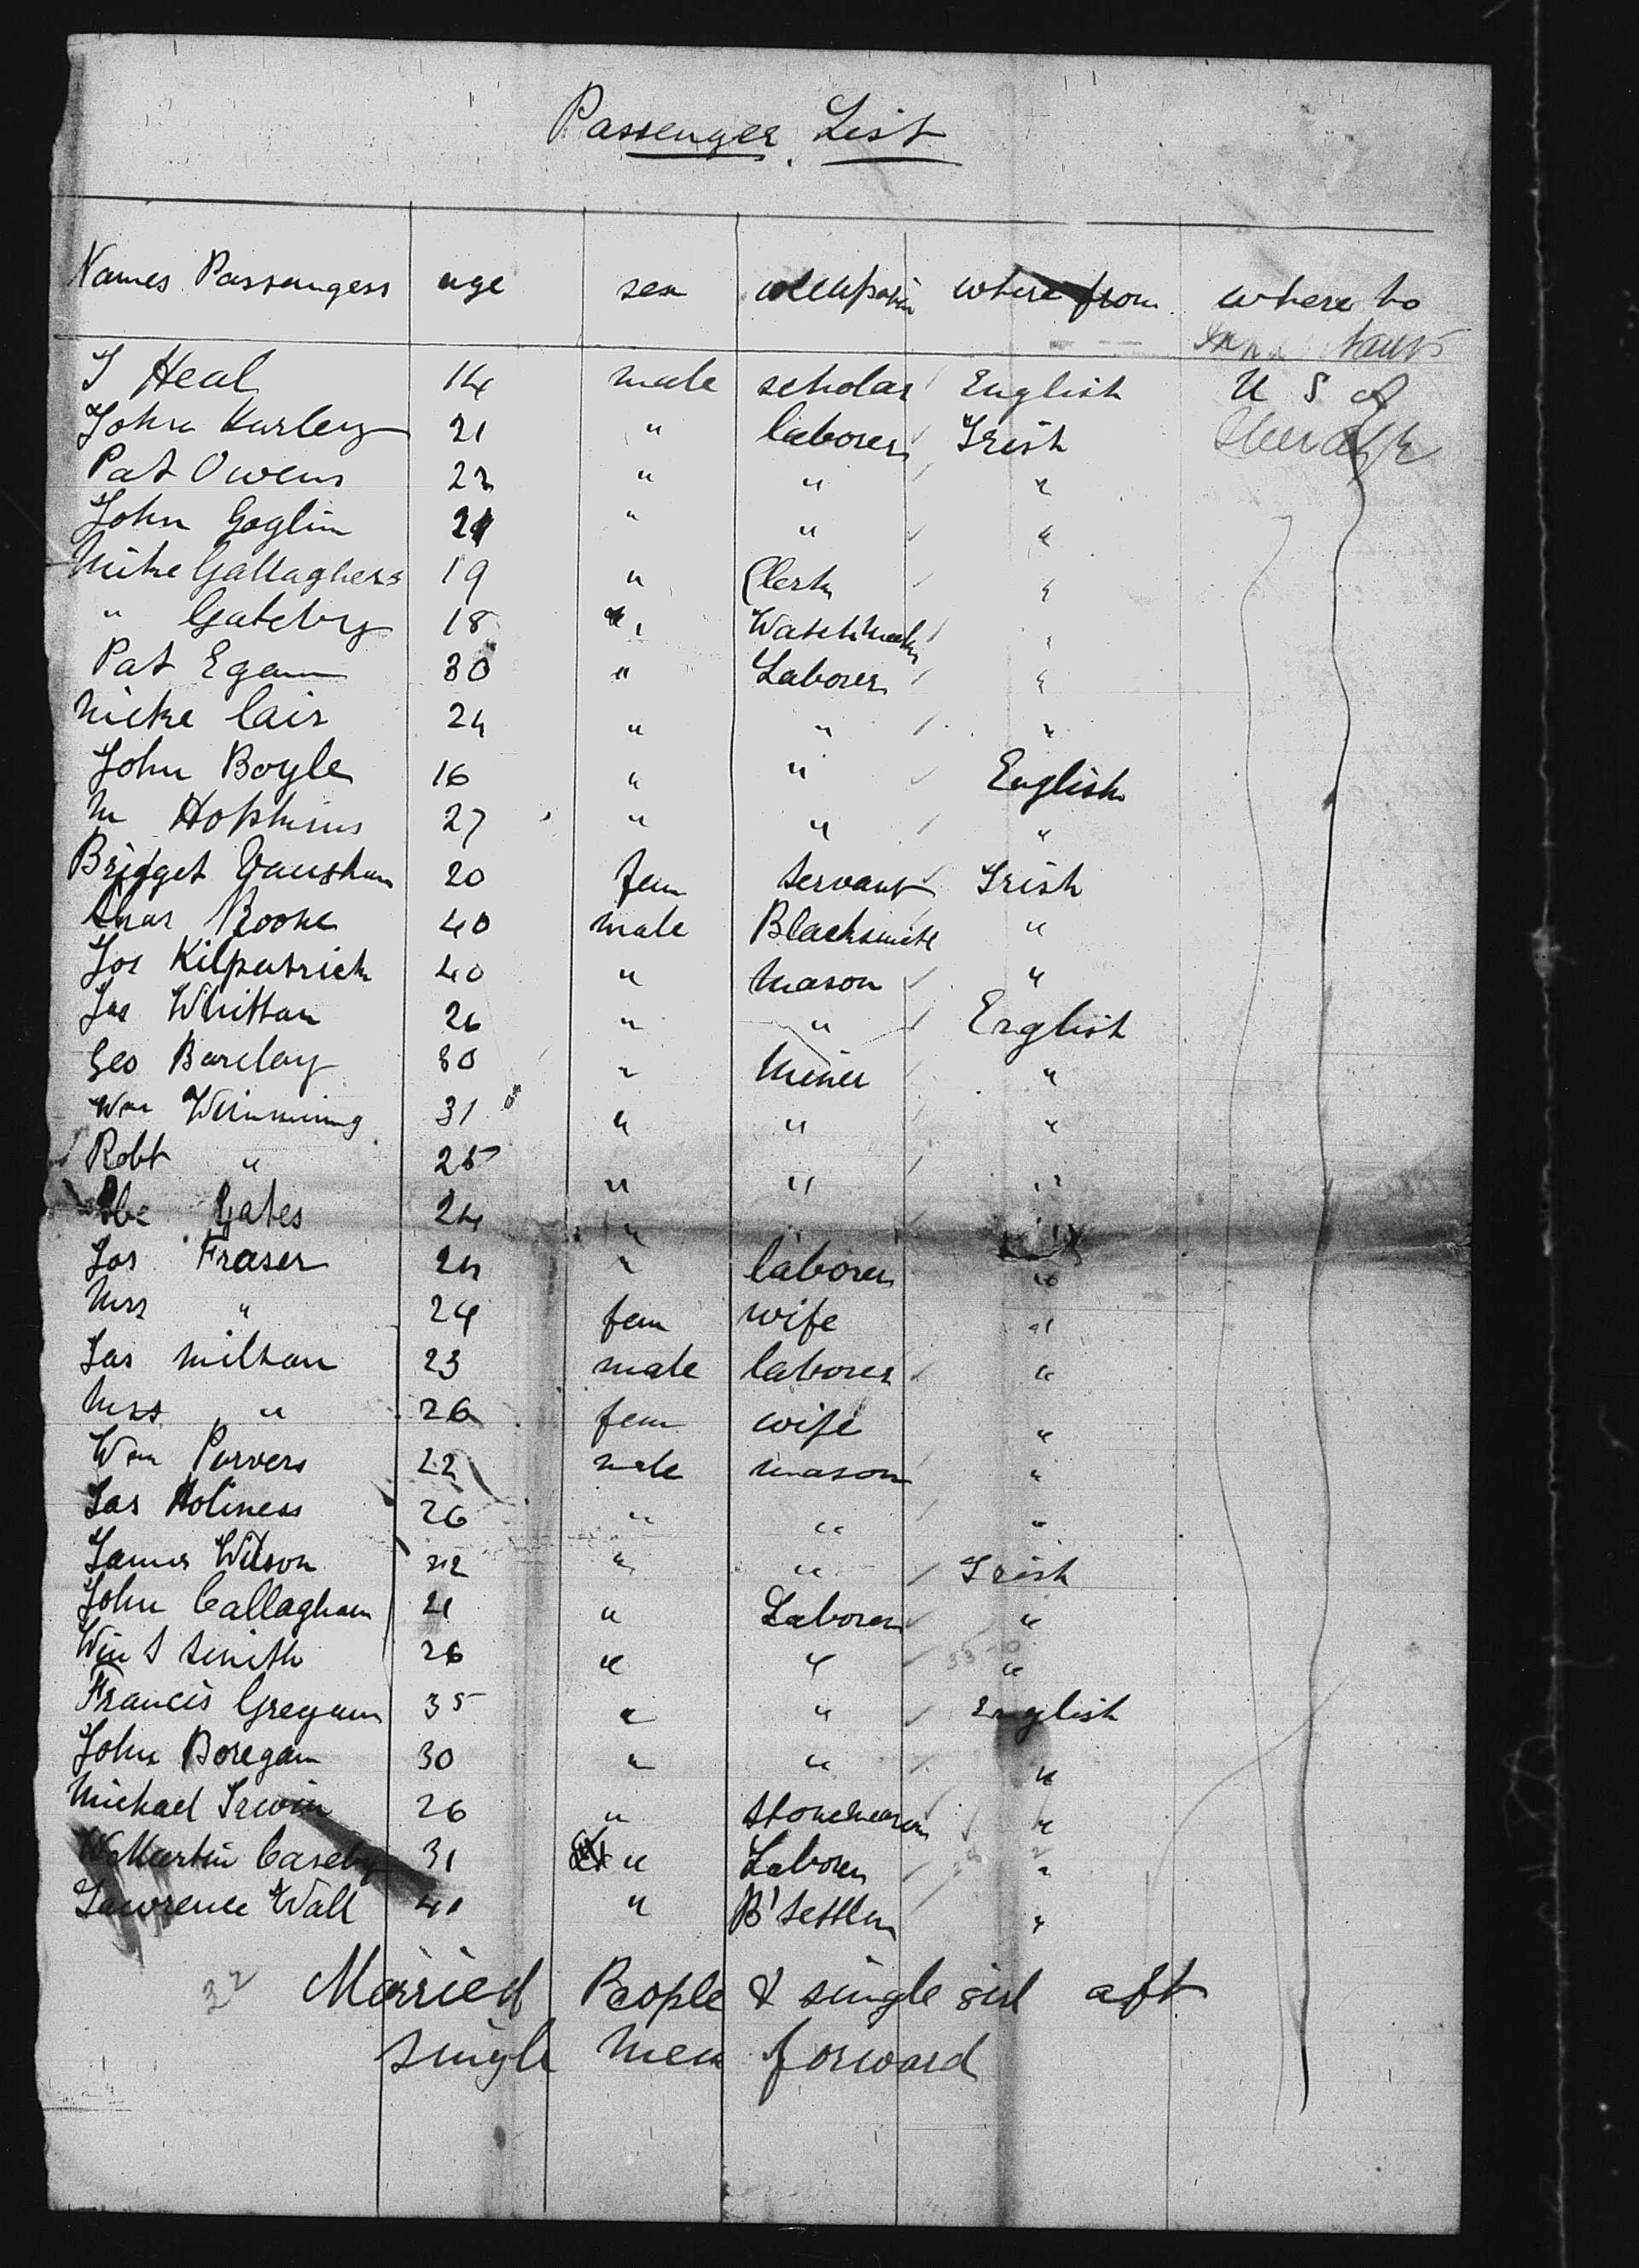 Passenger List
Names Passengers age sex occupation where from where to
J Heal 14 male scholar English U S of
John Hurley 21 " laborer Irish Steerage
Pat Owens 22 " " "
John Goglin 21 " " "
Mike Gallaghers 19 " Clerk "
" Gateby 18 " Watchmaker "
Pat Egan 30 " Laborer "
Mike Cair 24 " " "
John Boyle 16 " " English
M Hopkins 27 " " "
Bridget Vaughan 20 fem servant Irish
Chas Rooke 40 male Blacksmith "
Jos Kilpatrick 40 " Mason "
Jas Whittan 26 " " English
Geo Barclay 30 " Miner "
Wm Wimming 31 " " "
Robt " 25 " " "
Gates 24 "
Jas Fraser 24 " laborer "
Mrs " 24 fem wife "
Jas Miltan 23 male laborer "
Mrs " 26 fem wife "
Wm Purvers 22 male mason "
Jas Holiness 26 " " "
James Wilson 22 " " Irish
John Callaghan 21 " Laborer "
Wm S Smith 26 " " "
Francis Gregam 35 " " English
John Boregam 30 " " "
Michael Irwin 26 " stonemason "
Martin Caseby 31 " Laborer "
Lawrence Wall 41 " B' settler "
32 Married People & single girl aft
single men forward